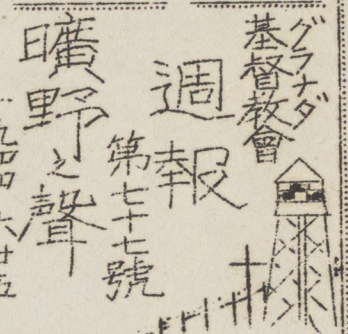 グラナダ
基督教會
週報
第七十七號
曠野之聲